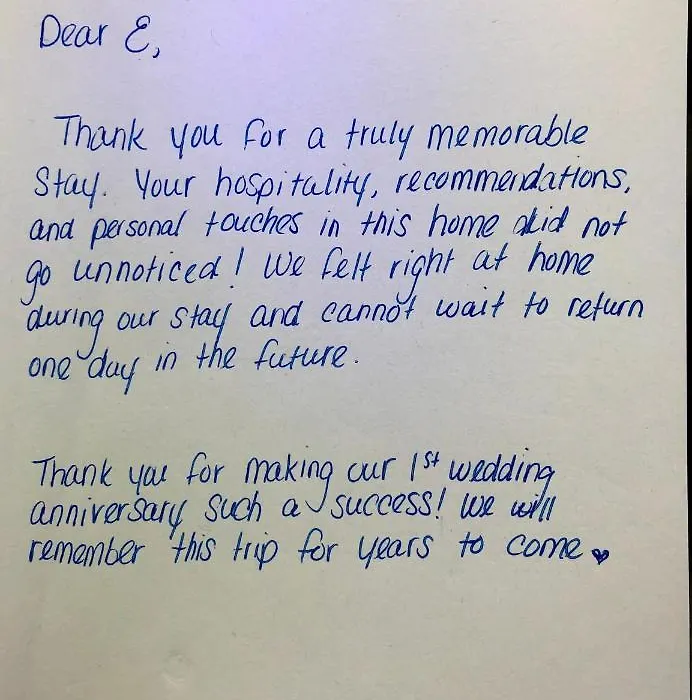 Dear E,
Thank you for a truly memorable
Stay. Your hospitality, recommendations,
and personal touches in this home did not
go unnoticed! We felt right at home
during our stay and cannot wait to return
one day in the future.
Thank you for making our 1st wedding
anniversary such a success! We will
remember this trip for years to come ♥